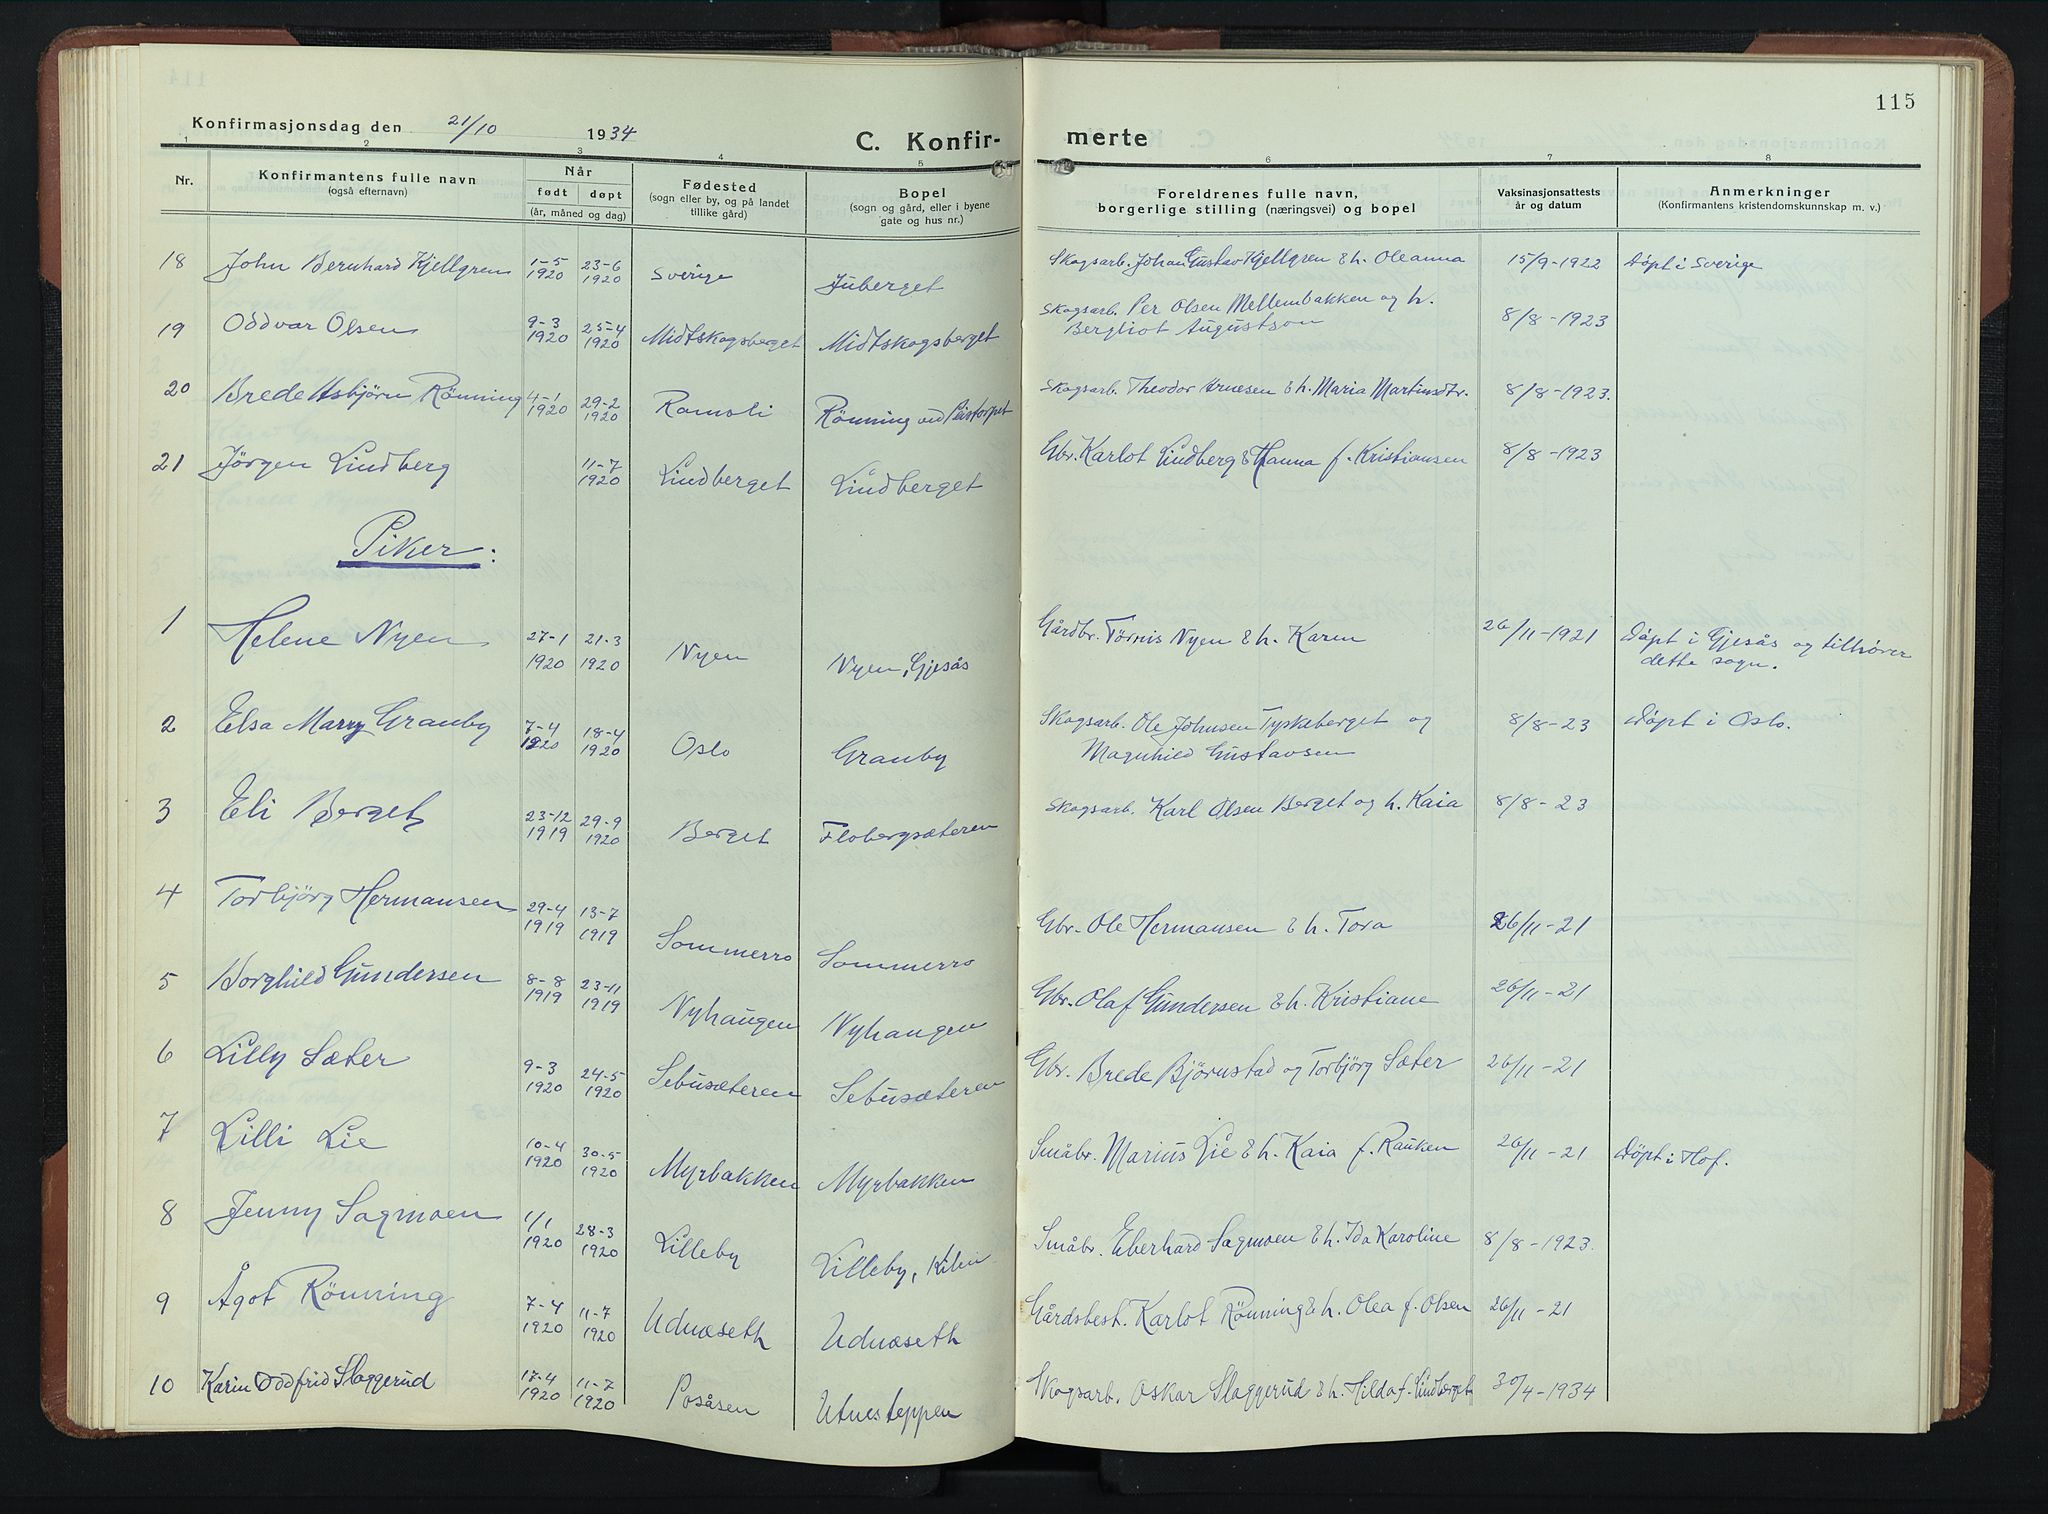 115
Konfirmasjonsdag den 21/10 1934
C. Konfir- merte
1 2 3 4 5 6 7 8
Nr. Konfirmantens fulle navn (også efternavn) Når født døpt (år, måned og dag) Fødested (sogn eller by, og på landet tillike gård) Bopel (sogn og gård, eller i byene gate og hus nr.) Foreldrenes fulle navn, borgerlige stilling (næringsvei) og bopel Vaksinasjonsattests år og datum Anmerkninger (Konfirmantens kristendomskunnskap m. v.)
18 John Bernhard Kjellgren 1-5 1920 23-6 1920 Sverige Juberget Skogsarb. Johan Gustav Kjellgren & h. Oleanna 15/9-1922 Døpt i Sverige
19 Oddvar Olsen 9-3 1920 25-4 1920 Midtskogsberget Midtskogsberget Skogsarb. Per Olsen Mellembakken og h. Bergliot Augustson 8/8-1923
20 Brede Asbjörn Rönning 4-1 1920 29-2 1920 Ramsli Rönning ved Peistorpet Skogsarb. Theodor Arnesen & h. Maria Martinsdtr. 8/8-1923.
21 Jörgen Lindberg 11-7 1920 Lindberget Lindberget Gbr. Karlot Lindberg & Hanna f. Kristiansen 8/8-1923
Piker:
1 Helene Nyen 27-1 1920 21-3 1920 Nyen Nyen, Gjesås Gårdbr. Törnis Nyen & h. Karen 26/11-1921 Döpt i Gjesås og tilhører dette sogn.
2 Elsa Marry Granby 7-4 1920 18-4 1920 Oslo Granby Skogsarb. Ole Johnsen Tyskeberget og Magnhild Gustavsen 8/8-23 Döpt i Oslo.
3 Eli Berget 23-12 1919 29-9 1920 Berget Flobergsæteren Skogsarb. Karl Olsen Berget og h. Kaia 8/8-23
4 Torbjörg Hermansen 29-4 1919 13-7 1919 Sommerro Sommerro Gbr. Ole Hermansen & h. Tora 26/11-21
5 Borghild Gundersen 8-8 1919 23-11 1919 Nyhaugen Nyhaugen Gbr. Olaf Gundersen & h. Kristiane 26/11-21
6 Lilly Sæter 9-3 1920 24-5 1920 Sebusæteren Sebusæteren Gbr. Brede Björnstad og Torbjörg Sæter 26/11-21
7 Lilli Lie 10-4 1920 30-5 1920 Myrbakken Myrbakken Småbr. Marius Lie & h. Kaia f. Rauken 26/11-21 Döpt i Hof.
8 Jenny Sagmoen 1/1 1920 28-3 1920 Lilleby Lilleby, Kilen Småbr. Eberhard Sagmoen & h. Ida Karoline 8/8-1923.
9 Ågot Rönning 7-4 1920 11-7 1920 Udnæseth Udnæseth Gårdsbest. Karlot Rönning & h. Olea f. Olsen 26/11-21
10 Karin Oddfrid Slaggerud 17-4 1920 11-7 1920 Posåsen Utnesteppen Skogsarb. Oskar Slaggerud & h. Hilda f. Lindberget 30/4-1934